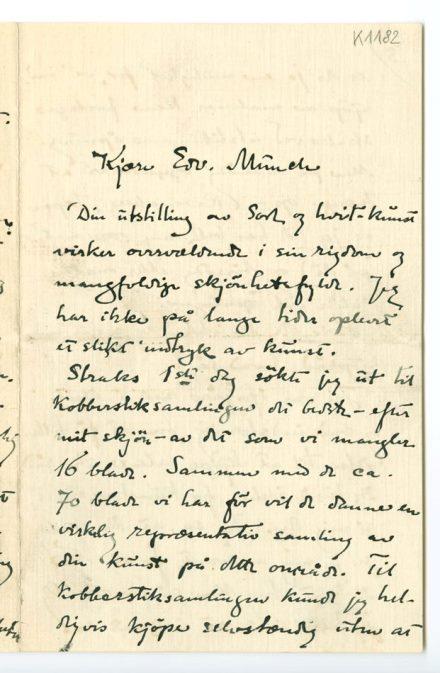 K1182
Kjære Edv. Munch
Din utstilling av Sort og hvit-kunst
virker overvældende i sin rigdom og
mangfoldige skjönhetsfylde. Jeg
har ikke på lange tider oplevet
et slikt indtryk av kunst.
Straks 1ste dag sökte jeg ut til
Kobberstiksamlingen det bedste - efter
mit skjön - av det som vi mangler
16 blade. Sammen med de ca.
70 blade vi har för vil de danne en
virkelig repræsentativ samling av
din kunst på dette område. Til
Kobberstiksamlingen kunde jeg hel-
digvis kjöpe selvstændig uten at